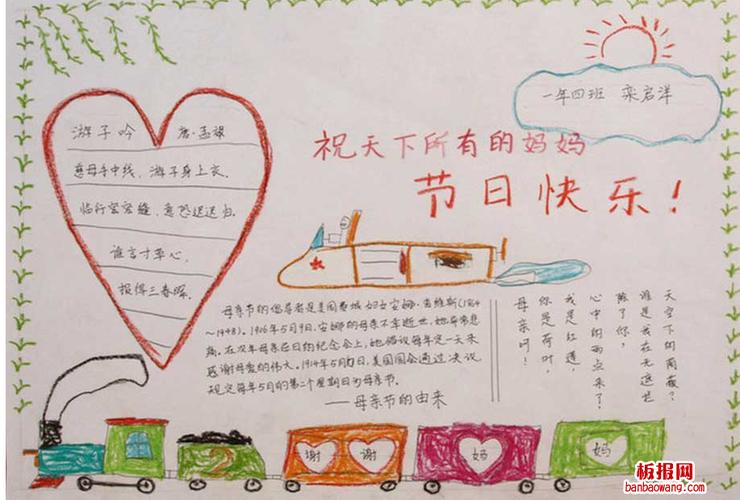 一年四班 栾启洋
祝天下所有的妈妈
节日快乐!
游子吟 唐·孟
慈母手中线,游子身上衣。
临行密密缝,意恐迟迟归。
谁言寸草心,
报得三春晖。
母亲节的倡导者是美国费城妇女安娜·查维斯(1864
~1948)。1906年5月9日,安娜的母亲不幸逝世,她非常悲
痛。在次年母亲忌日的纪念会上,她倡议每年定一天来
感谢母爱的伟大。1914年5月日,美国国会通过决议
规定每年5月的第二个星期日为母亲节。
——母亲节的由来
母亲呵!
你是荷叶,
我是红莲,
心中的雨点来了!
除了你,
谁是我在无遮
天空下的荫蔽?
2
谢 谢 妈 妈
板报网
banbaowang.com